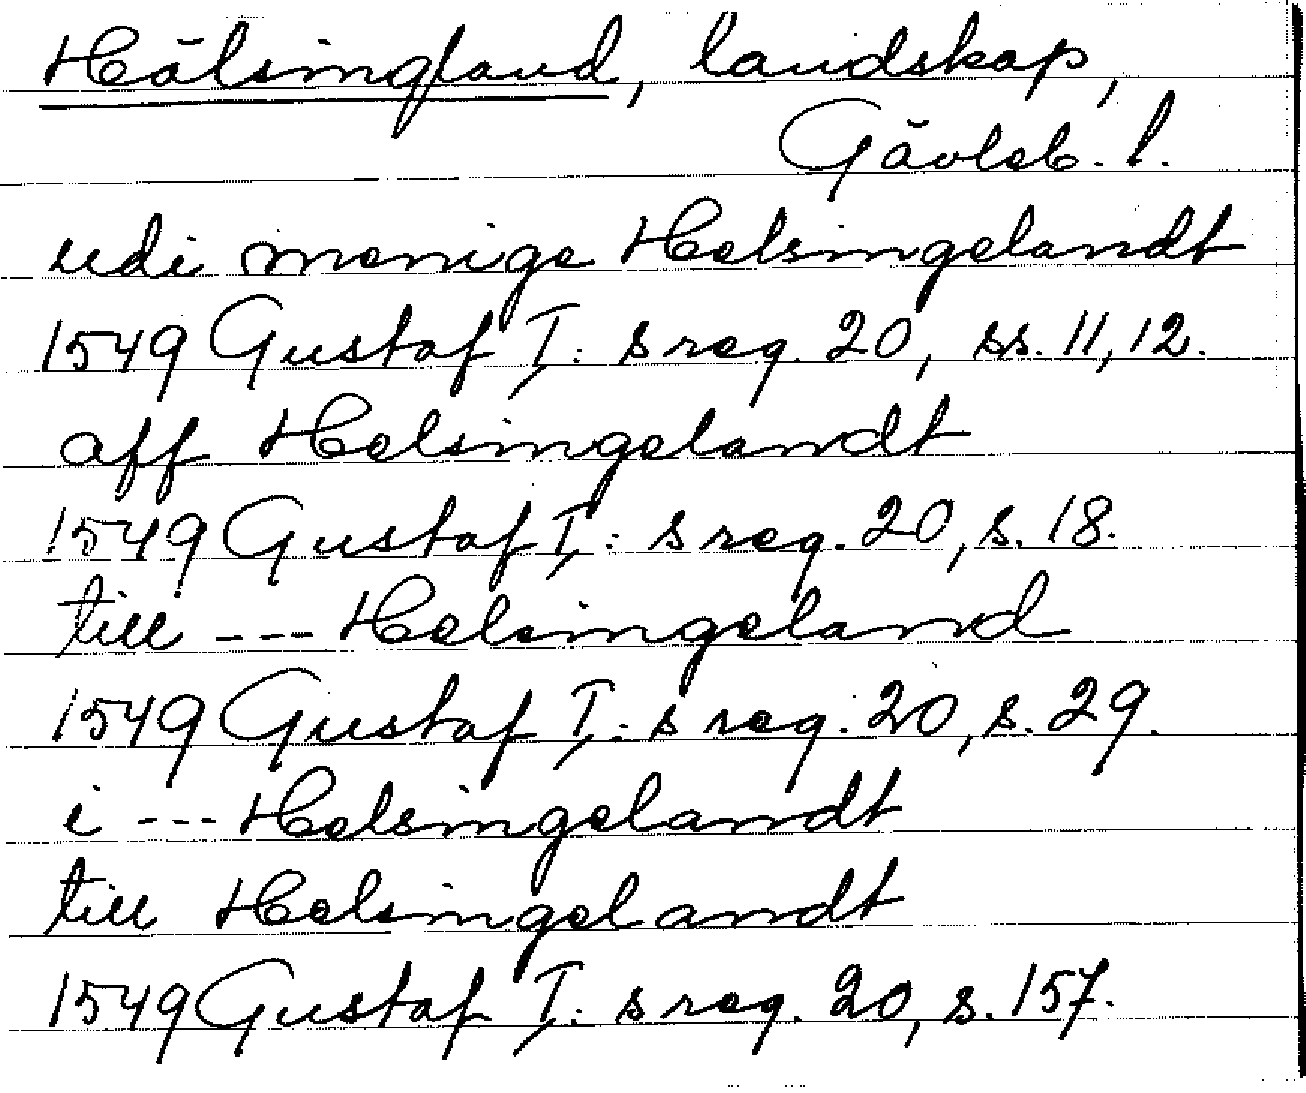 Hälsingland, landskap,
Gävleb. l.
udi menige Helsingelandt
1549 Gustaf I: s reg. 20, ss. 11, 12.
aff Helsingelandt
1549 Gustaf I: s reg. 20, s. 18.
till --- Helsingeland
1549 Gustaf I: s reg. 20, s. 29.
i --- Helsingelandt
till Helsingelandt
1549 Gustaf I: s reg. 20, s. 157.